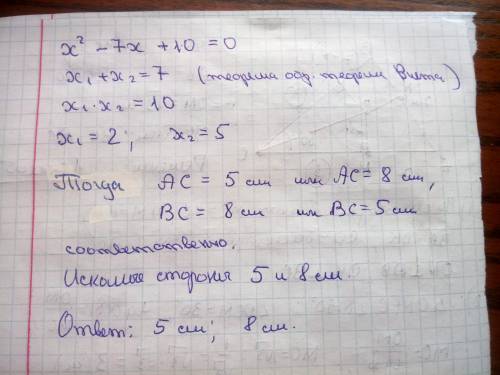 x² - 7x + 10 = 0
x₁ + x₂ = 7 (теорема обр. теореме Виета)
x₁ · x₂ = 10
x₁ = 2; x₂ = 5
Тогда AC = 5 см или AC = 8 см,
BC = 8 см или BC = 5 см
соответственно.
Искомые стороны 5 и 8 см.
Ответ: 5 см; 8 см.